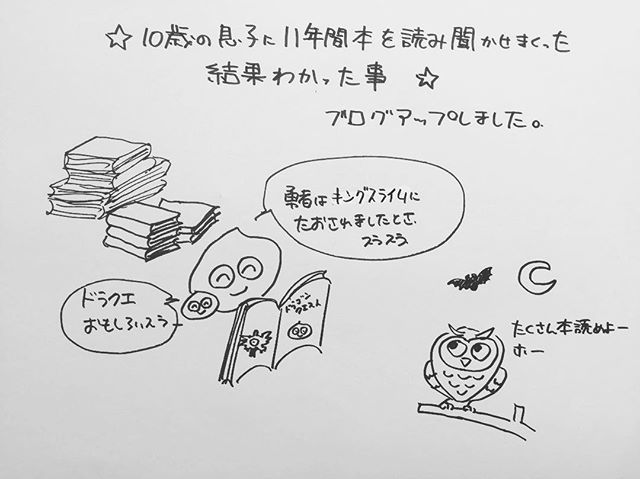 ☆ 10歳の息子に11年間本を読み聞かせまくった
結果わかった事 ☆
ブログアップしました。
勇者はキングスライムに
たおされましたとさ、
スラスラ
ドラクエ
おもしろいスラー
ドラゴン
クエスト
たくさん本読めよー
ホー